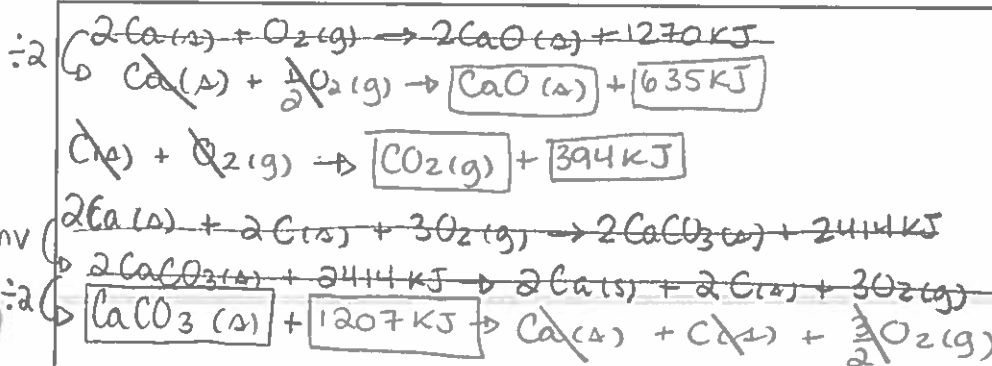 ÷2 2Ca(s) + O2(g) → 2CaO(s) + 1270KJ
Ca(s) + 1/2 O2(g) → CaO(s) + 635KJ
C(s) + O2(g) → CO2(g) + 394KJ
nv 2Ca(s) + 2C(s) + 3O2(g) → 2CaCO3(s) + 2414KJ
÷2 2CaCO3(s) + 2414KJ → 2Ca(s) + 2C(s) + 3O2(g)
CaCO3(s) + 1207KJ → Ca(s) + C(s) + 3/2 O2(g)